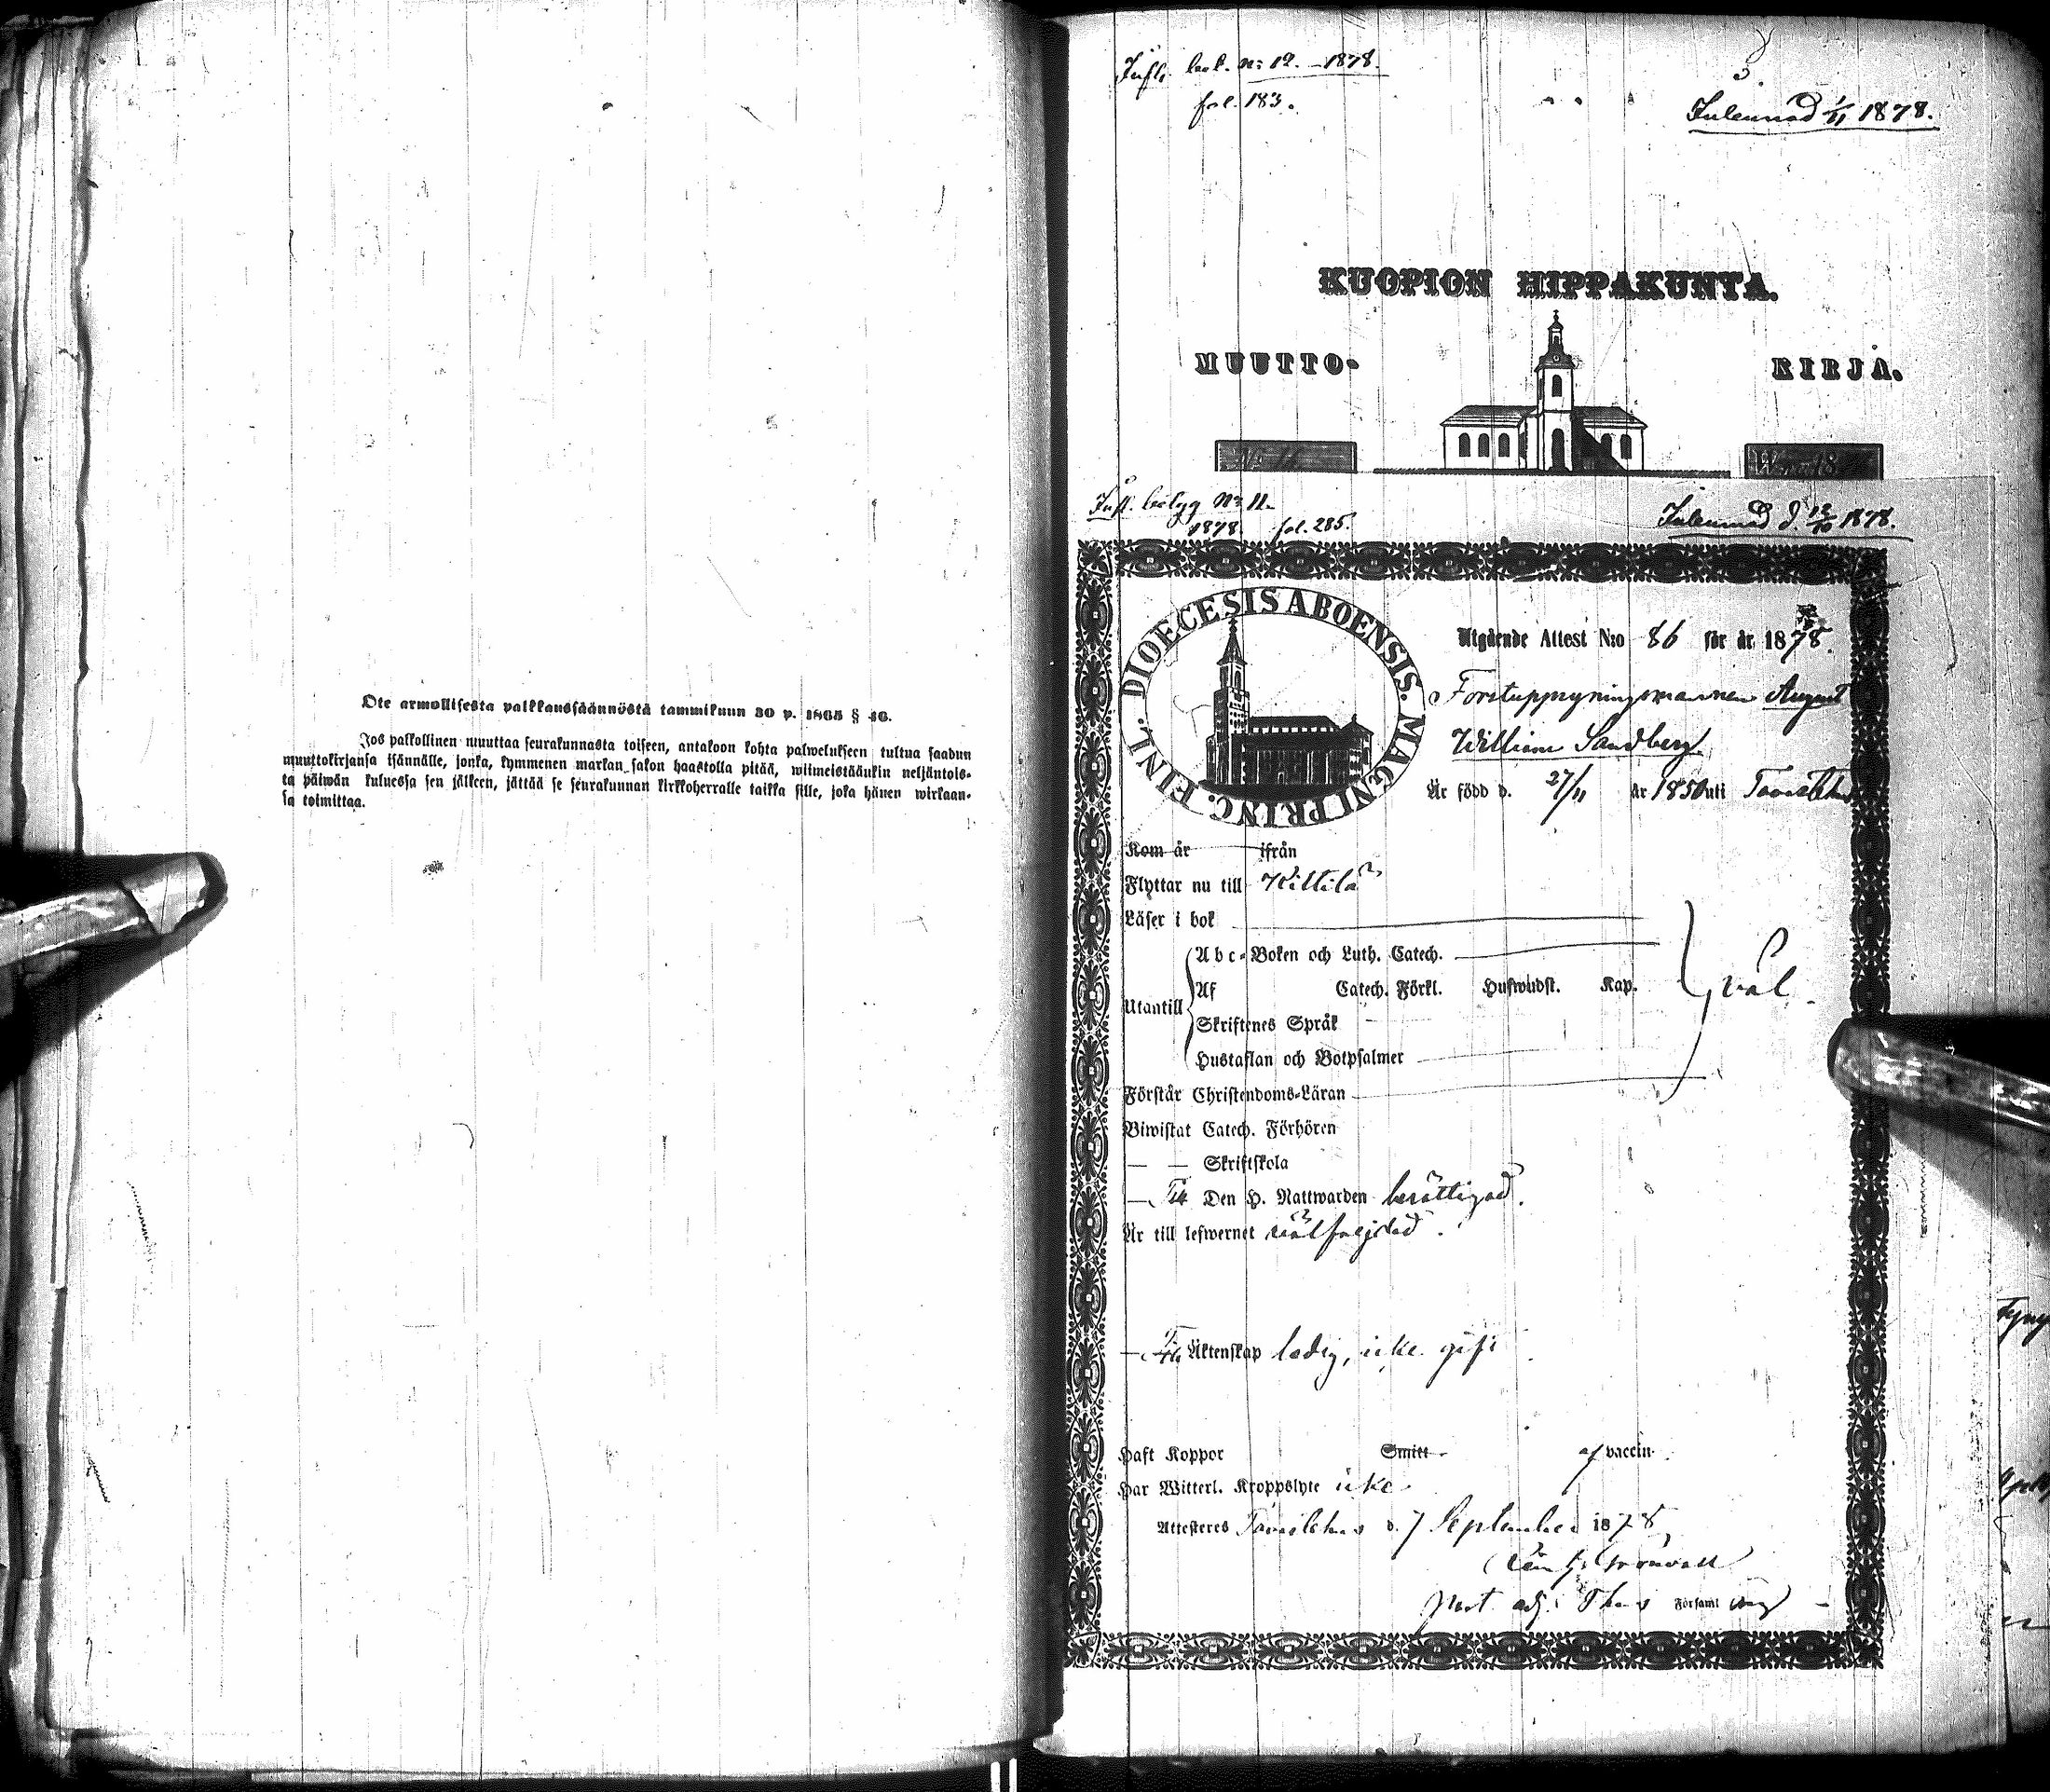 Ote armollisesta palkkaussäännöstä tammikuun 30 p. 1865 § 46.
Jos palkollinen muuttaa seurakunnasta toiseen, antakoon kohta palwelukseen tultua saadun
muuttokirjansa isännälle, jonka, kymmenen markan sakon haastolla pitää, wiimeistäänkin neljäntois-
ta päiwän kuluessa sen jälkeen, jättää se seurakunnan kirkkoherralle taikka sille, joka hänen wirkaan-
sa toimittaa.
n:o 12. 1878.
fol. 183.
Inlemnad 1/11 1878.
KUOPION HIPPAKUNTA.
MUUTTO-KIRJA.
Infl. betyg No 11.
1878. fol. 285.
Inlemnad d. 12/10 1878.
DIOECESIS ABOENSIS. MAGNI PRINC. FINL.
Utgående Attest N:o 86 för år 1878.
Forstuppsyningsmannen August
William Sandberg
Är född d. 27/11 år 1850 uti Tavastehus
Kom år ifrån
Flyttar nu till Kittilä
Läser i bok
Abc-Boken och Luth. Catech.
Utantill Af Catech. Förkl. Huswudst. Kap. väl.
Skriftenes Språk
Hustaflan och Botpsalmer
Förstår Christendoms-Läran
Biwistat Catech. Förhören
— — Skriftskola
— Till Den H. Nattwarden berättigad.
Är till lefwernet välfrejdad.
— Till Äktenskap ledig, icke gift
Haft Koppor Smitt af vaccin
Har Witterl. Kroppslyte icke
Attesteres Tavastehus d. 7 September 1878,
Grönvall
past. adj. i Församl